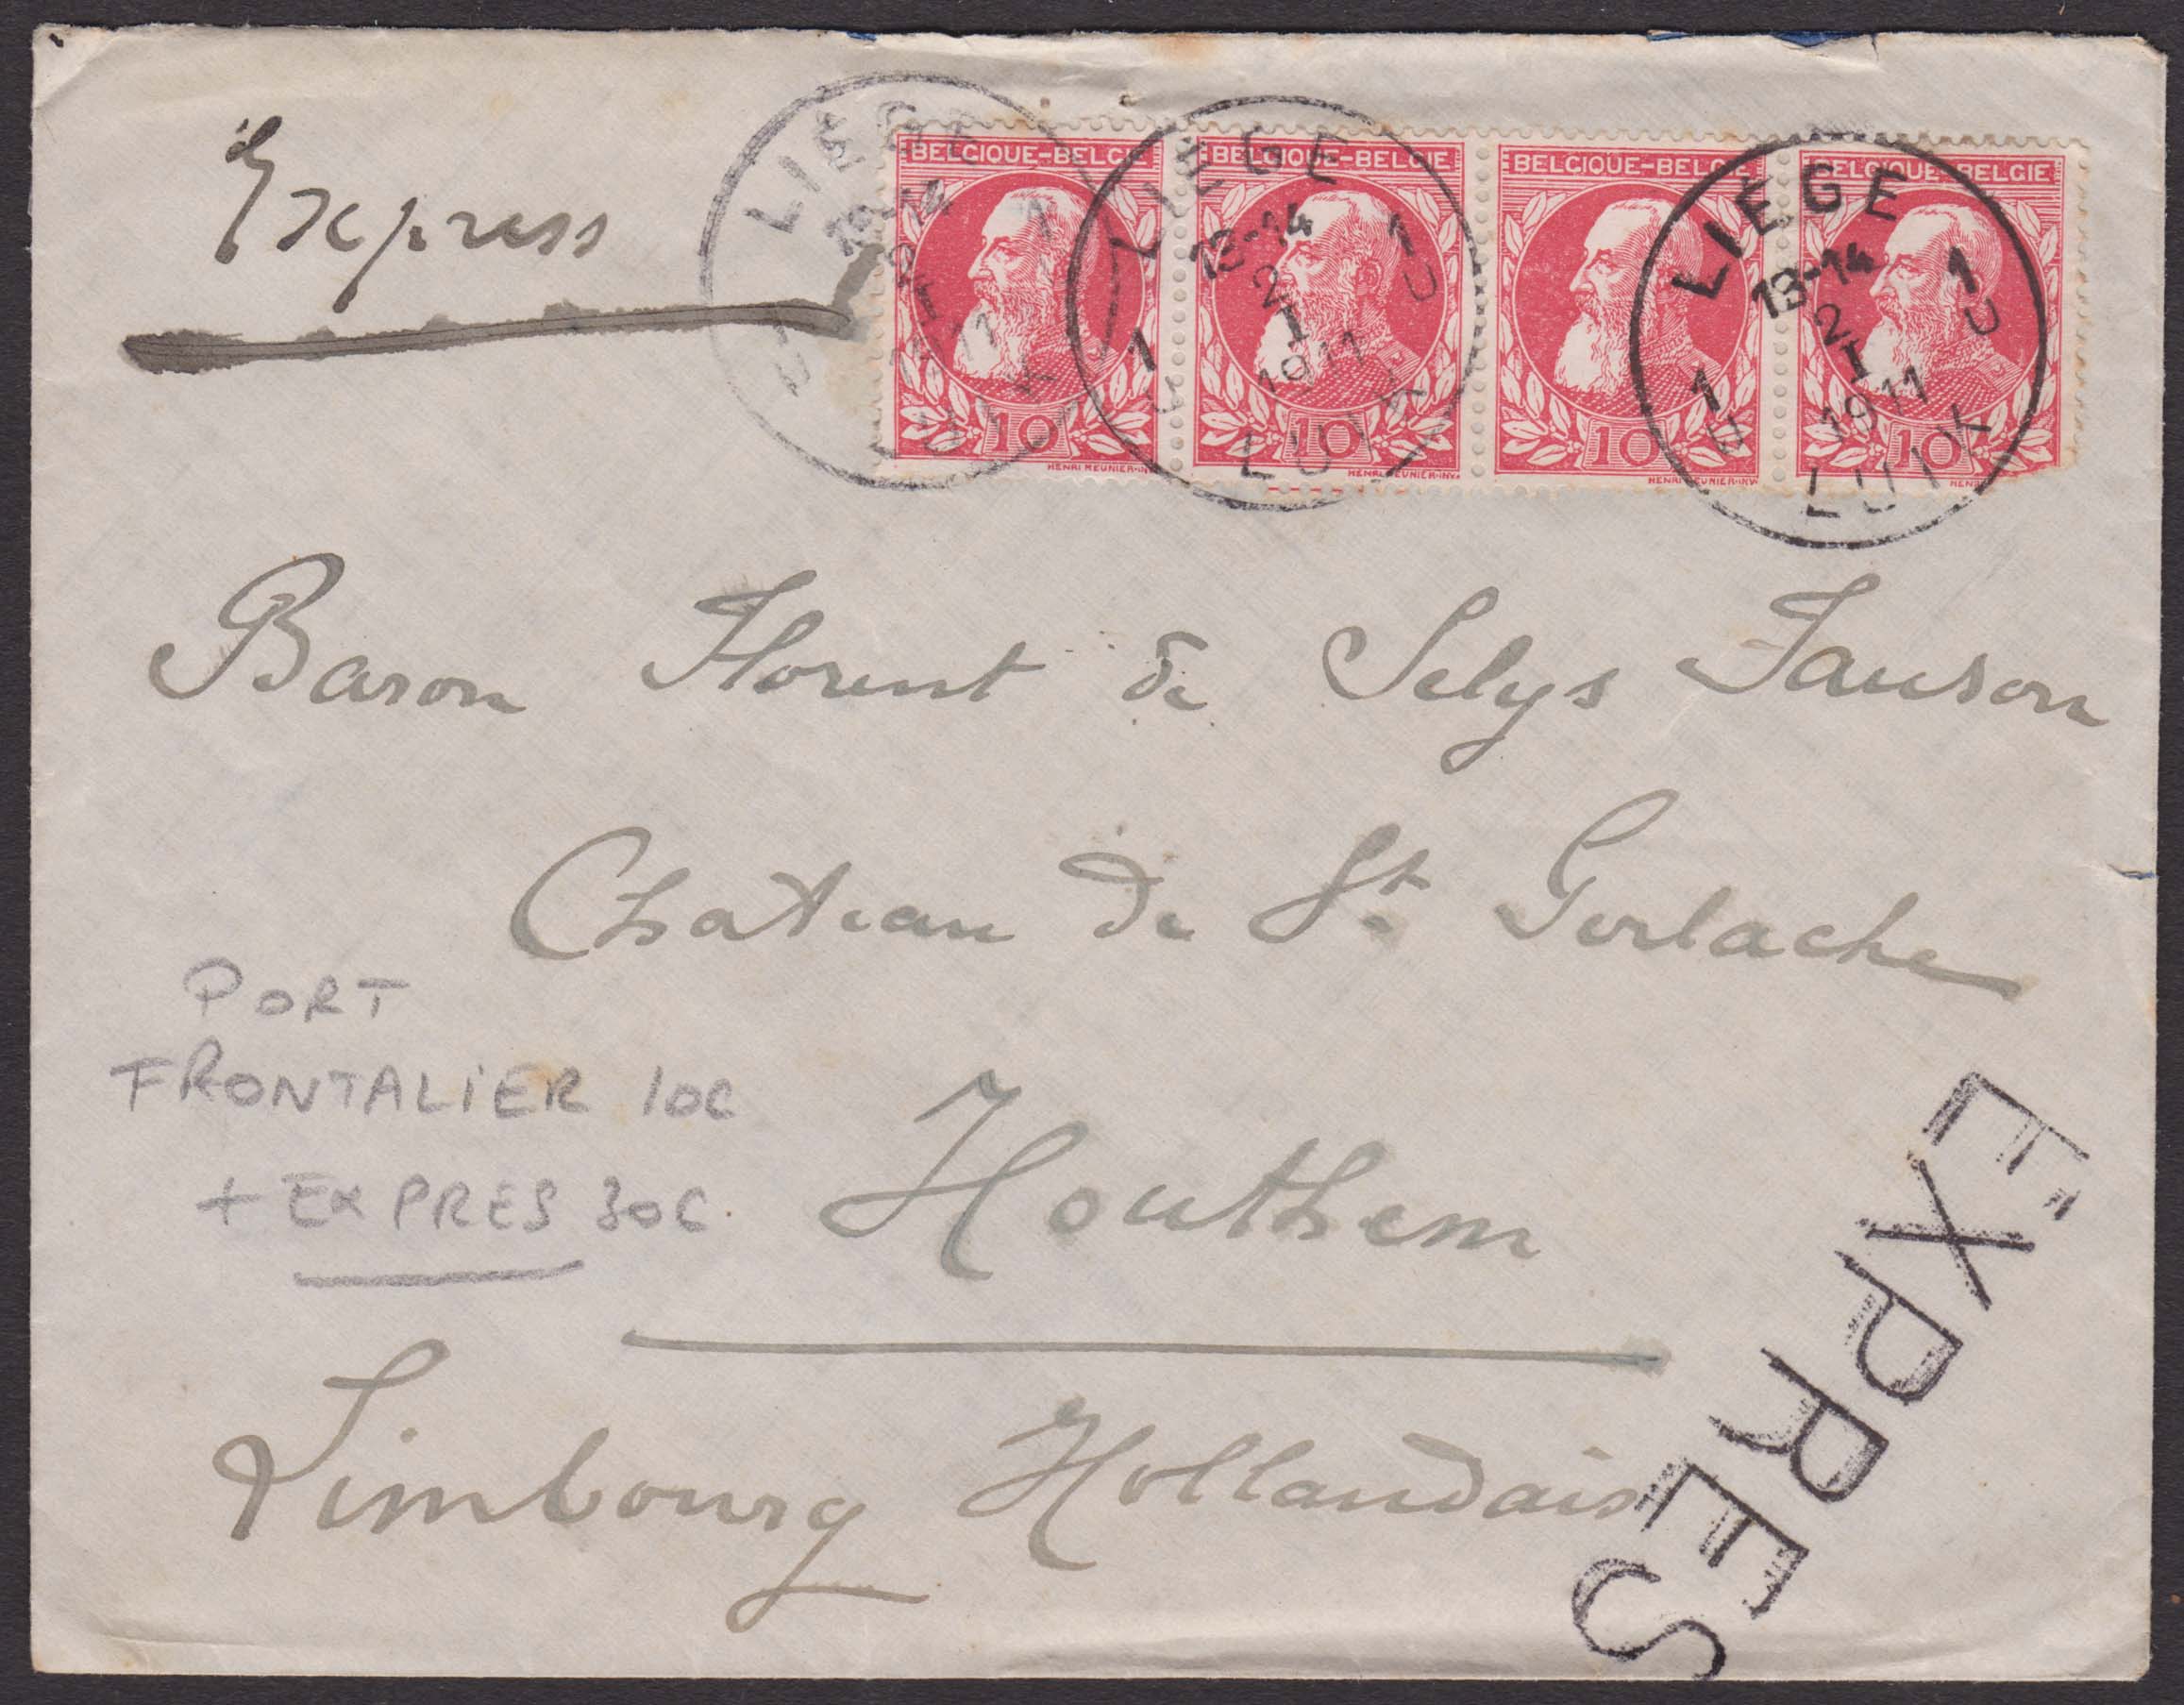 Express
BELGIQUE-BELGIE BELGIQUE-BELGIE BELGIQUE-BELGIE BELGIQUE-BELGIE
10 10 10 10
HENRI MEUNIER-INV. HENRI MEUNIER-INV. HENRI MEUNIER-INV. HENRI
LIEGE 1
13-14
2
I
1911
LUIK
LIEGE 1
13-14
2
I
1911
1
LUIK
LIEGE 1
13-14
2
I
1911
1
LUIK
Baron Florent de Selys Fanson
Chateau de St. Gerlache
PORT
FRONTALIER 10C
+ EXPRES 30C.
Houthem
Limbourg Hollandais
EXPRES